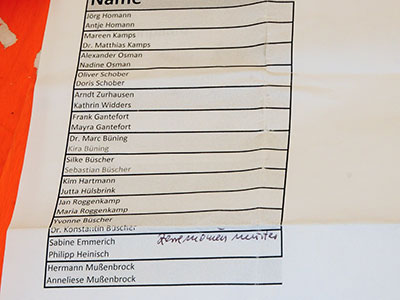 Name
Jörg Homann
Antje Homann
Mareen Kamps
Dr. Matthias Kamps
Alexander Osman
Nadine Osman
Oliver Schober
Doris Schober
Arndt Zurhausen
Kathrin Widders
Frank Gantefort
Mayra Gantefort
Dr. Marc Büning
Kira Büning
Silke Büscher
Sebastian Büscher
Kim Hartmann
Jutta Hülsbrink
Jan Roggenkamp
Maria Roggenkamp
Yvonne Büscher
Dr. Konstantin Büscher
Sabine Emmerich Zeremonienmeister
Philipp Heinisch
Hermann Mußenbrock
Anneliese Mußenbrock